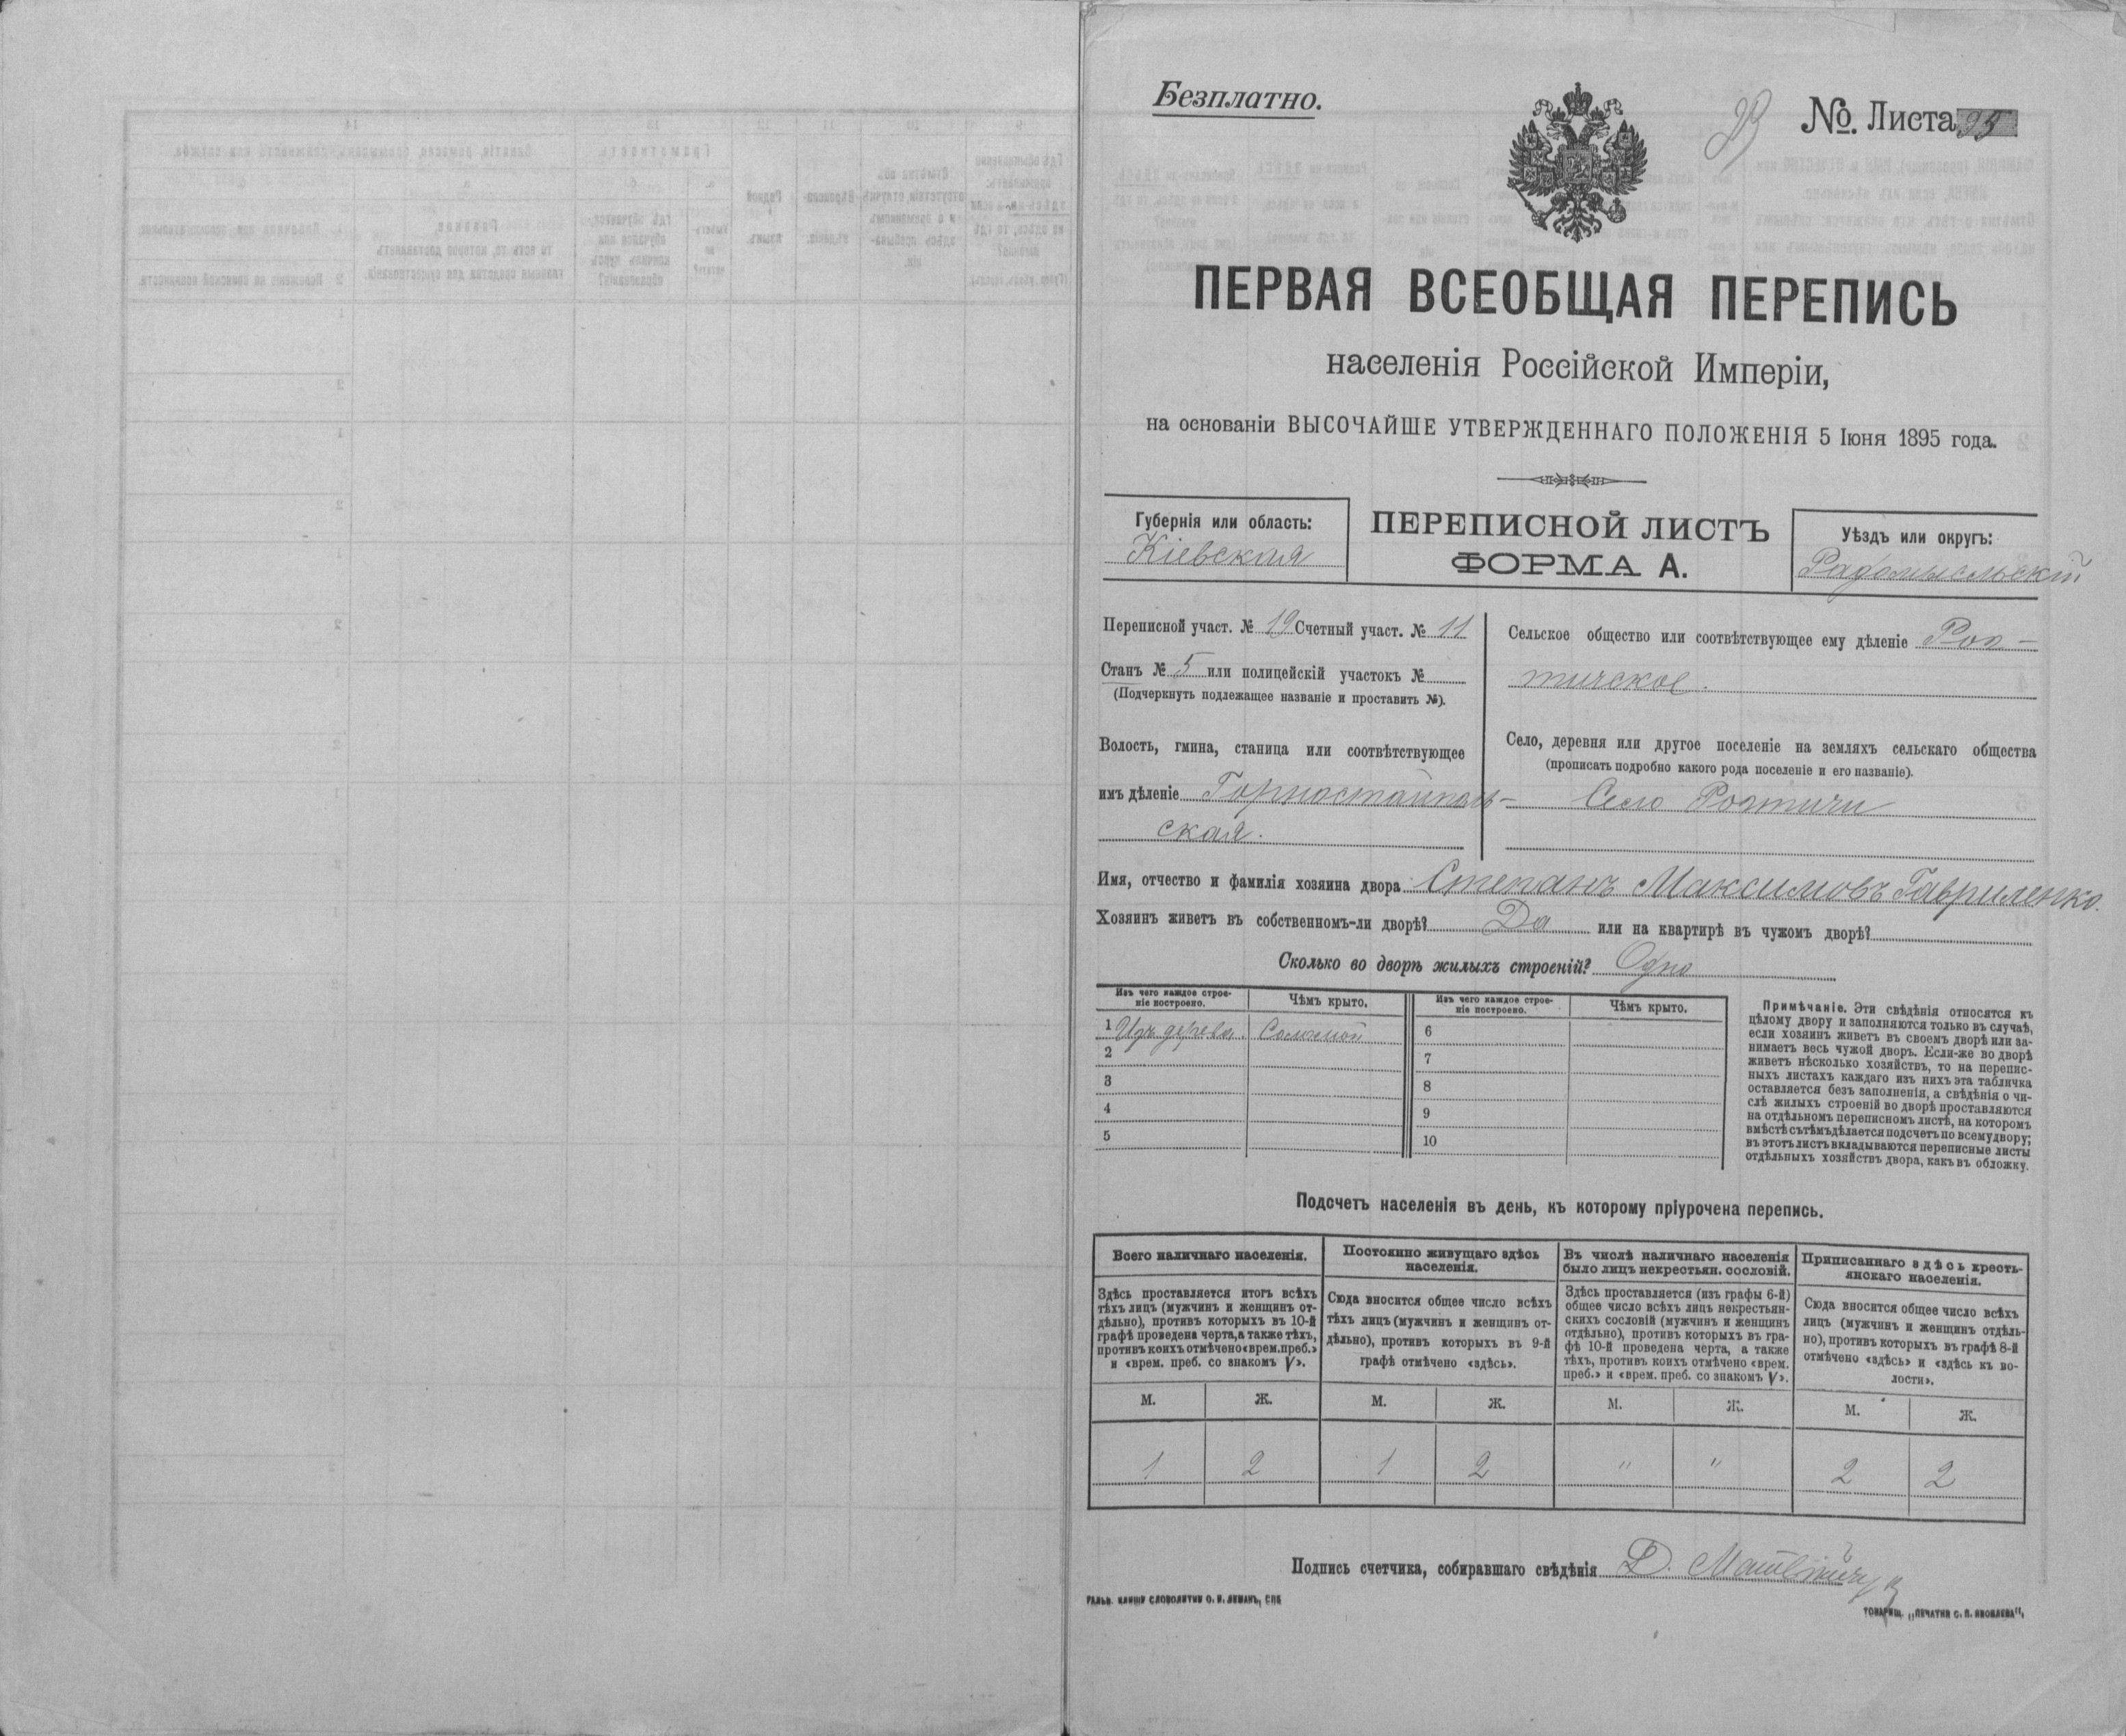 Безплатно.
№. Листа 23
23
ПЕРВАЯ ВСЕОБЩАЯ ПЕРЕПИСЬ
населенія Россійской Имперіи,
на основаніи ВЫСОЧАЙШЕ УТВЕРЖДЕННАГО ПОЛОЖЕНІЯ 5 Іюня 1895 года.
Губернія или область:
Кіевская
ПЕРЕПИСНОЙ ЛИСТЪ
ФОРМА А.
Уѣздъ или округъ:
Радомысльскій
Переписной участ. № 19 Счетный участ. № 11
Станъ № 5 или полицейскій участокъ №
(Подчеркнуть подлежащее названіе и проставить №).
Волость, гмина, станица или соотвѣтствующее
имъ дѣленіе Горностайполь-
ская.
Сельское общество или соотвѣтствующее ему дѣленіе
тичское.
Село, деревня или другое поселеніе на земляхъ сельскаго общества
(прописать подробно какого рода поселеніе и его названіе).
Село
Имя, отчество и фамилія хозяина двора Степанъ Максимовъ Гавриленко.
Хозяинъ живетъ въ собственномъ-ли дворѣ? Да или на квартирѣ въ чужомъ дворѣ?
Сколько во дворѣ жилыхъ строеній? Одно
Изъ чего каждое строе-
ніе построено.
Чѣмъ крыто.
Изъ чего каждое строе-
ніе построено.
Чѣмъ крыто.
1 Изъ дерева. Соломой 6
2 7
3 8
4 9
5 10
Примѣчаніе. Эти свѣдѣнія относятся къ
цѣлому двору и заполняются только въ случаѣ,
если хозяинъ живетъ въ своемъ дворѣ или за-
нимаетъ весь чужой дворъ. Если-же во дворѣ
живетъ нѣсколько хозяйствъ, то на перепис-
ныхъ листахъ каждаго изъ нихъ эта табличка
оставляется безъ заполненія, а свѣдѣнія о чи-
слѣ жилыхъ строеній во дворѣ проставляются
на отдѣльномъ переписномъ листѣ, на которомъ
вмѣстѣ съ тѣмъ дѣлается подсчетъ по всему двору;
въ этотъ листъ вкладываются переписные листы
отдѣльныхъ хозяйствъ двора, какъ въ обложку.
Подсчетъ населенія въ день, къ которому пріурочена перепись.
Всего наличнаго населенія.
Здѣсь проставляется итогъ всѣхъ
тѣхъ лицъ (мужчинъ и женщинъ от-
дѣльно), противъ которыхъ въ 10-й
графѣ проведена черта, а также тѣхъ,
противъ коихъ отмѣчено «врем. преб.»
и «врем. преб. со знакомъ V».
Постоянно живущаго здѣсь
населенія.
Сюда вносится общее число всѣхъ
тѣхъ лицъ (мужчинъ и женщинъ от-
дѣльно), противъ которыхъ въ 9-й
графѣ отмѣчено «здѣсь».
Въ числѣ наличнаго населенія
было лицъ некрестьян. сословій.
Здѣсь проставляется (изъ графы 6-й)
общее число всѣхъ лицъ некрестьян-
скихъ сословій (мужчинъ и женщинъ
отдѣльно), противъ которыхъ въ гра-
фѣ 10-й проведена черта, а также
тѣхъ, противъ коихъ отмѣчено «врем.
преб.» и «врем. преб. со знакомъ V».
Приписаннаго здѣсь кресть-
янскаго населенія.
Сюда вносится общее число всѣхъ
лицъ (мужчинъ и женщинъ отдѣль-
но), противъ которыхъ въ графѣ 8-й
отмѣчено «здѣсь» и «здѣсь къ во-
лости».
М. Ж. М. Ж. М. Ж. М. Ж.
1 2 1 2 " " 2 2
Подпись счетчика, собиравшаго свѣдѣнія Д.
ГАЛЬВ. КЛИШЕ СЛОВОЛИТНИ О. И. ЛЕМАНЪ, СПБ
ТОВАРИЩ. „ПЕЧАТНЯ С. П. ЯКОВЛЕВА".